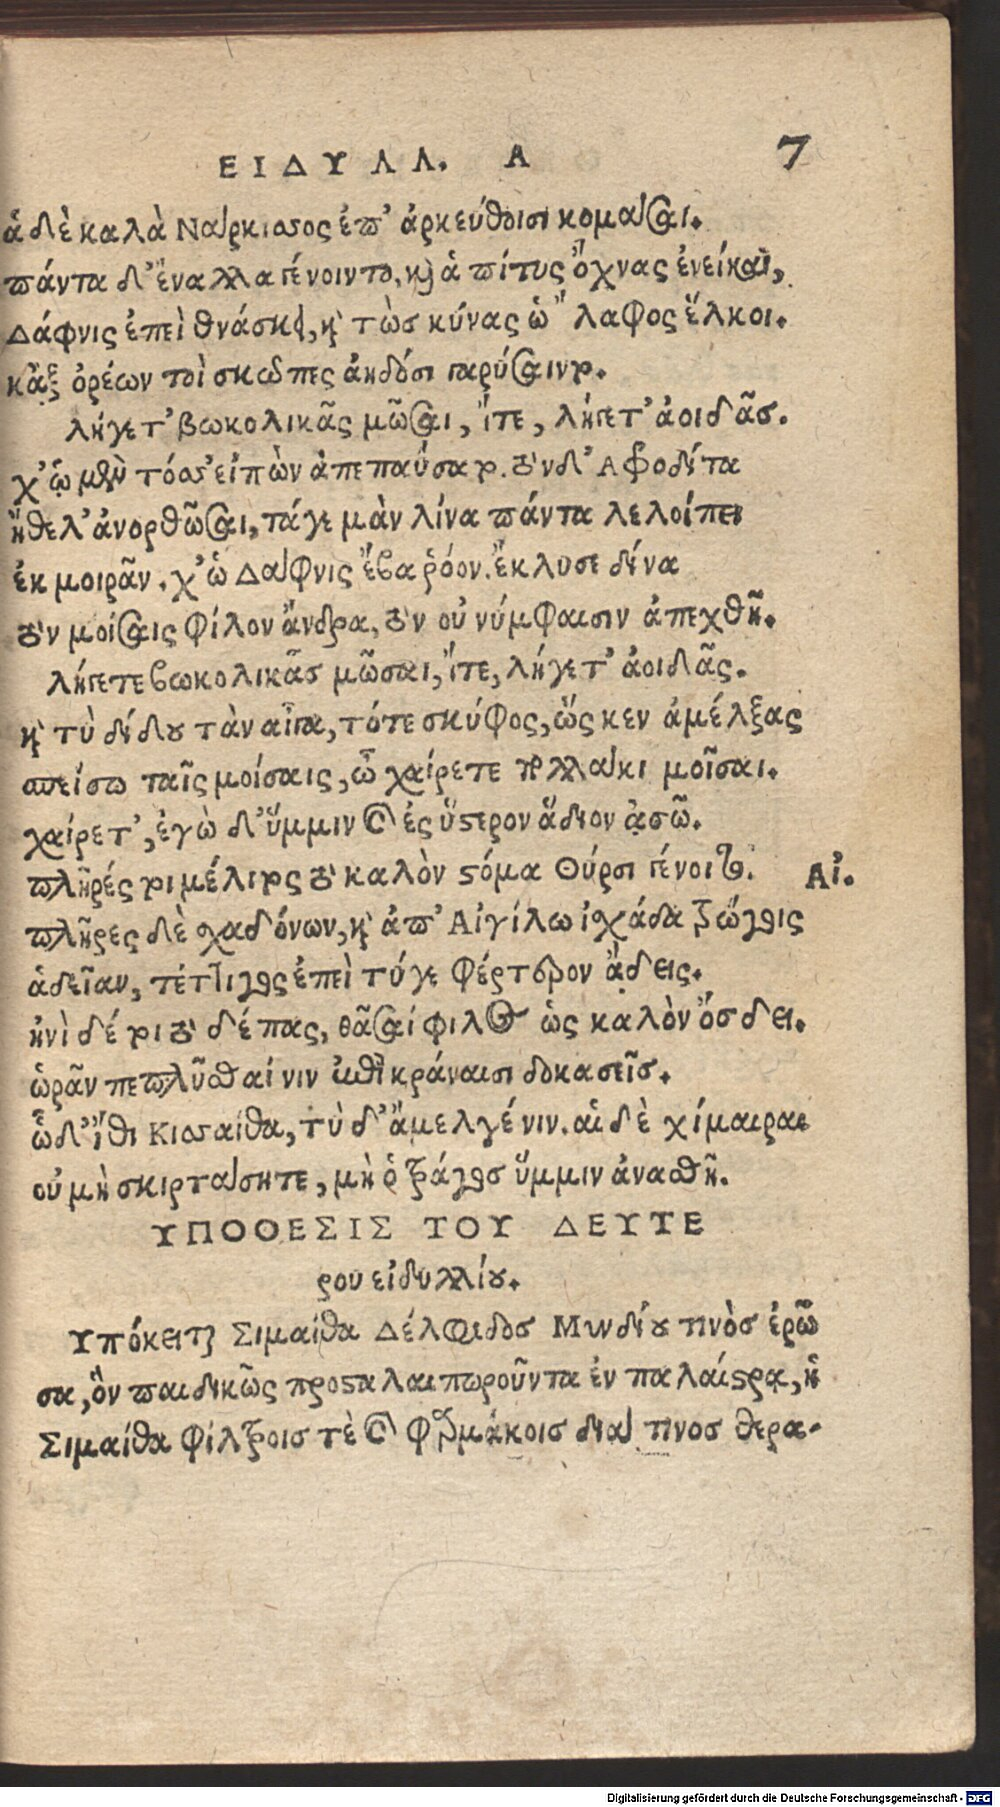 ΕΙΔΥΛΛ. Α 7
ἁ δὲ καλὰ Νάρκισσος ἐπ' ἀρκεύθοισι κομάσαι.
πάντα δ' ἔναλλα γένοιντο, καὶ ἁ πίτυς ὄχνας ἐνείκαι,
Δάφνις ἐπεὶ θνάσκει, καὶ τὼς κύνας ὡ "λαφος ἕλκοι.
κᾂξ ὀρέων τοὶ σκῶπες ἀηδόσι γαρύσαιντο.
λήγετ' βωκολικᾶς μῶσαι, ἴτε, λήγετ' ἀοιδᾶς.
χ' ᾥ μὲν τόσσ' εἰπὼν ἀπεπαύσατο. τὸν δ' Αφροδίτα
ἤθελ' ἀνορθῶσαι, τάγε μὰν λίνα πάντα λελοίπει
ἐκ μοιρᾶν. χ' ὡ Δάφνις ἔβα ῥόον. ἔκλυσε δίνα
τὸν μοίσαις φίλον ἄνδρα, τὸν οὐ νύμφαισιν ἀπεχθῆ.
λήγετε βωκολικᾶς μῶσαι, ἴτε, λήγετ' ἀοιδᾶς.
καὶ τὺ δίδου τὰν αἶγα, τότε σκύφος, ὥς κεν ἀμέλξας
σπείσω ταῖς μοίσαις, ὦ χαίρετε πολλάκι μοῖσαι.
χαίρετ', ἐγὼ δ' ὔμμιν καὶ ἐς ὕστερον ἅδιον ᾀσῶ.
πλῆρές τοι μέλιτος τὸ καλὸν στόμα Θύρσι γένοιτο. Αἰ.
πλῆρες δὲ σχαδόνων, καὶ ἀπ' Αἰγίλω ἰσχάδα τρώγοις
ἁδεῖαν, τέττιγος ἐπεὶ τύγε φέρτερον ᾄδεις.
ἠνὶ δέ τοι τὸ δέπας, θᾶσαί φίλος ὡς καλὸν ὄσδει.
ὡρᾶν πεπλῦσθαί νιν ἐπὶ κράναισι δοκασεῖς.
ὧδ' ἴθι Κισσαίθα, τὺ δ' ἄμελγέ νιν. αἱ δὲ χίμαιραι
οὐ μὴ σκιρτάσητε, μὴ ὁ τράγος ὔμμιν ἀναστῆ.
ΥΠΟΘΕΣΙΣ ΤΟΥ ΔΕΥΤΕ
ρου εἰδυλλίου.
Υπόκειται Σιμαίθα Δέλφιδος Μυνδίου τινὸς ἐρῶ
σα, ὃν παιδικῶς προσταλαιπωροῦντα ἐν παλαίστρᾳ, ἡ
Σιμαίθα φίλτροις τὲ καὶ φαρμάκοις διά τινος θερα-
Digitalisierung gefördert durch die Deutsche Forschungsgemeinschaft - DFG